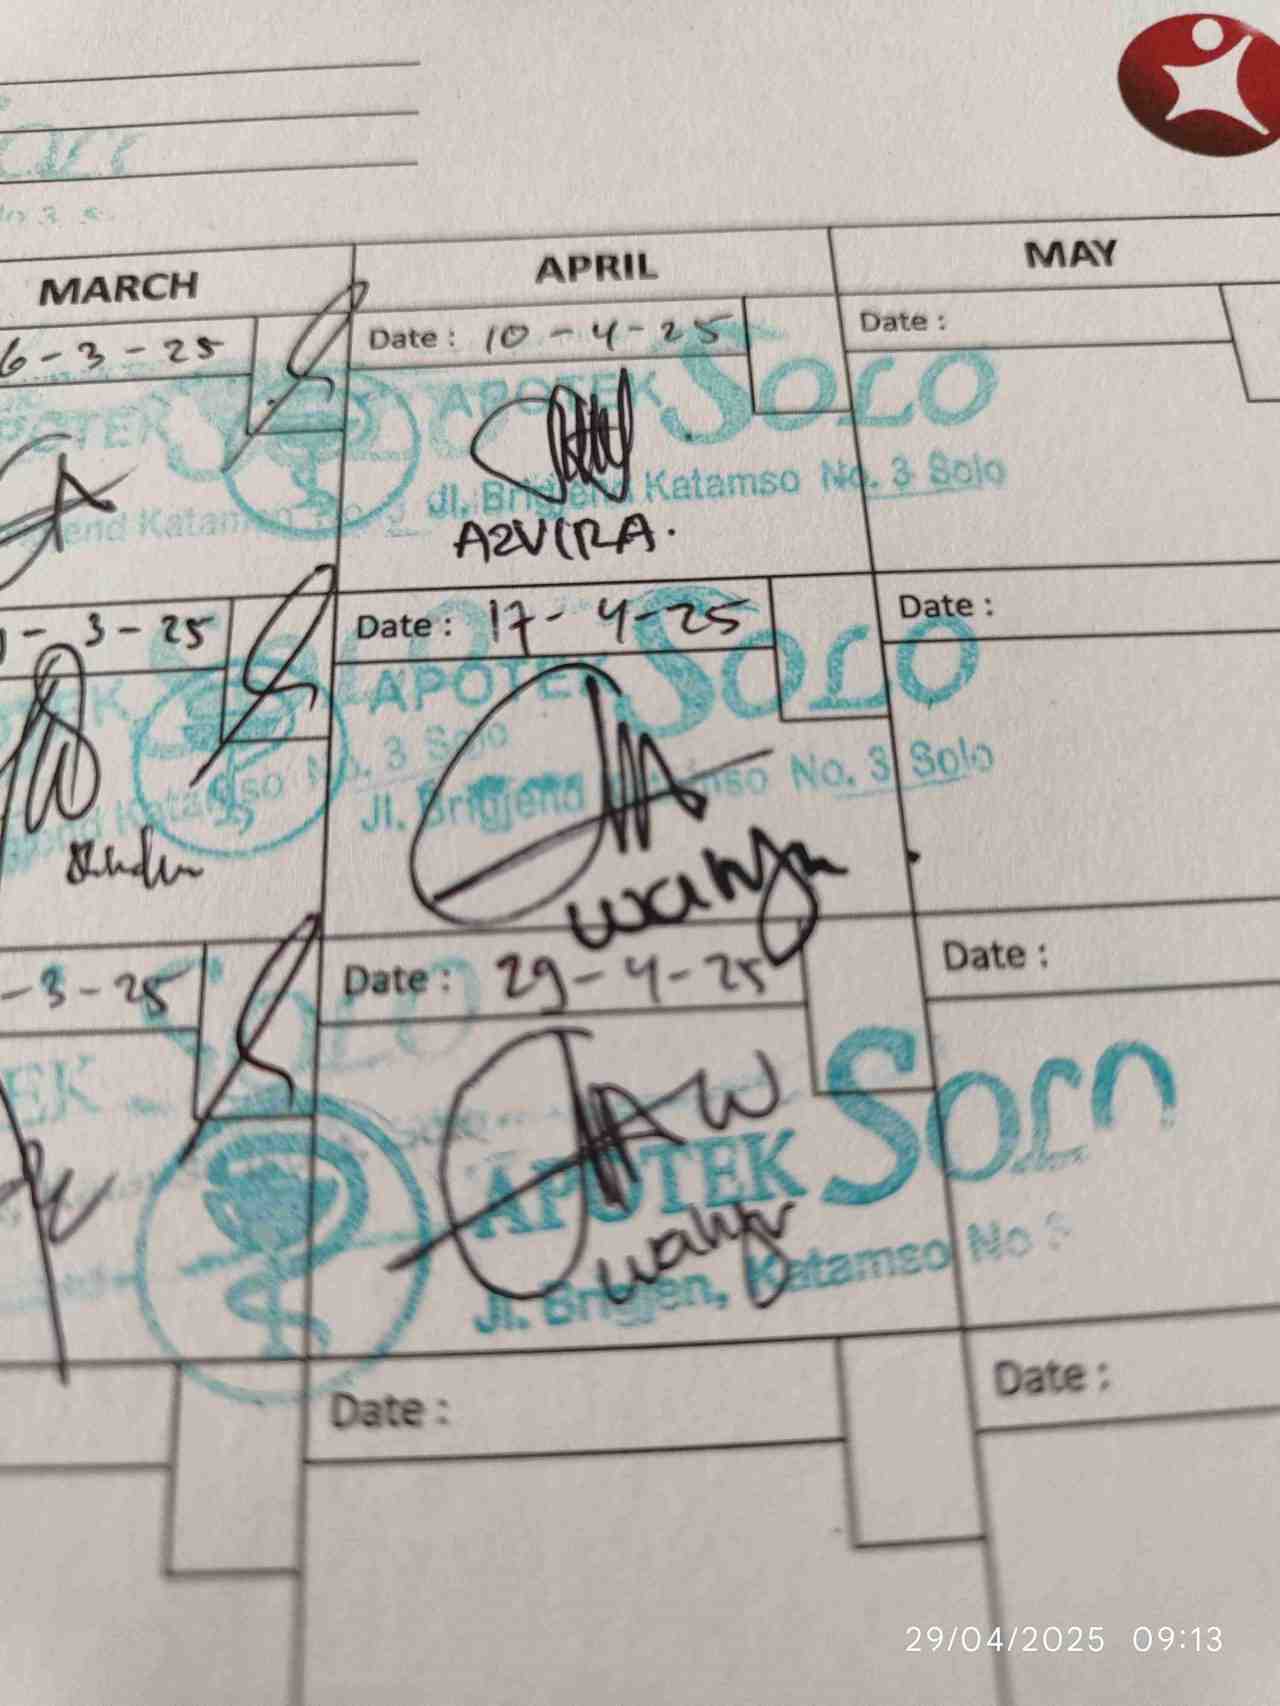 MARCH
APRIL
MAY
6-3-25
Date : 10-4-25
Date :
APOTEK SOLO
Jl. Brigjend Katamso No. 3 Solo
AZVIRA.
3-25
Date : 17-4-25
Date :
APOTEK SOLO
Jl. Brigjend Katamso No. 3 Solo
wahyu
-3-25
Date : 29-4-25
Date :
APOTEK SOLO
wahyu
Jl. Brigjen, Katamso No 3
Date :
Date :
29/04/2025 09:13